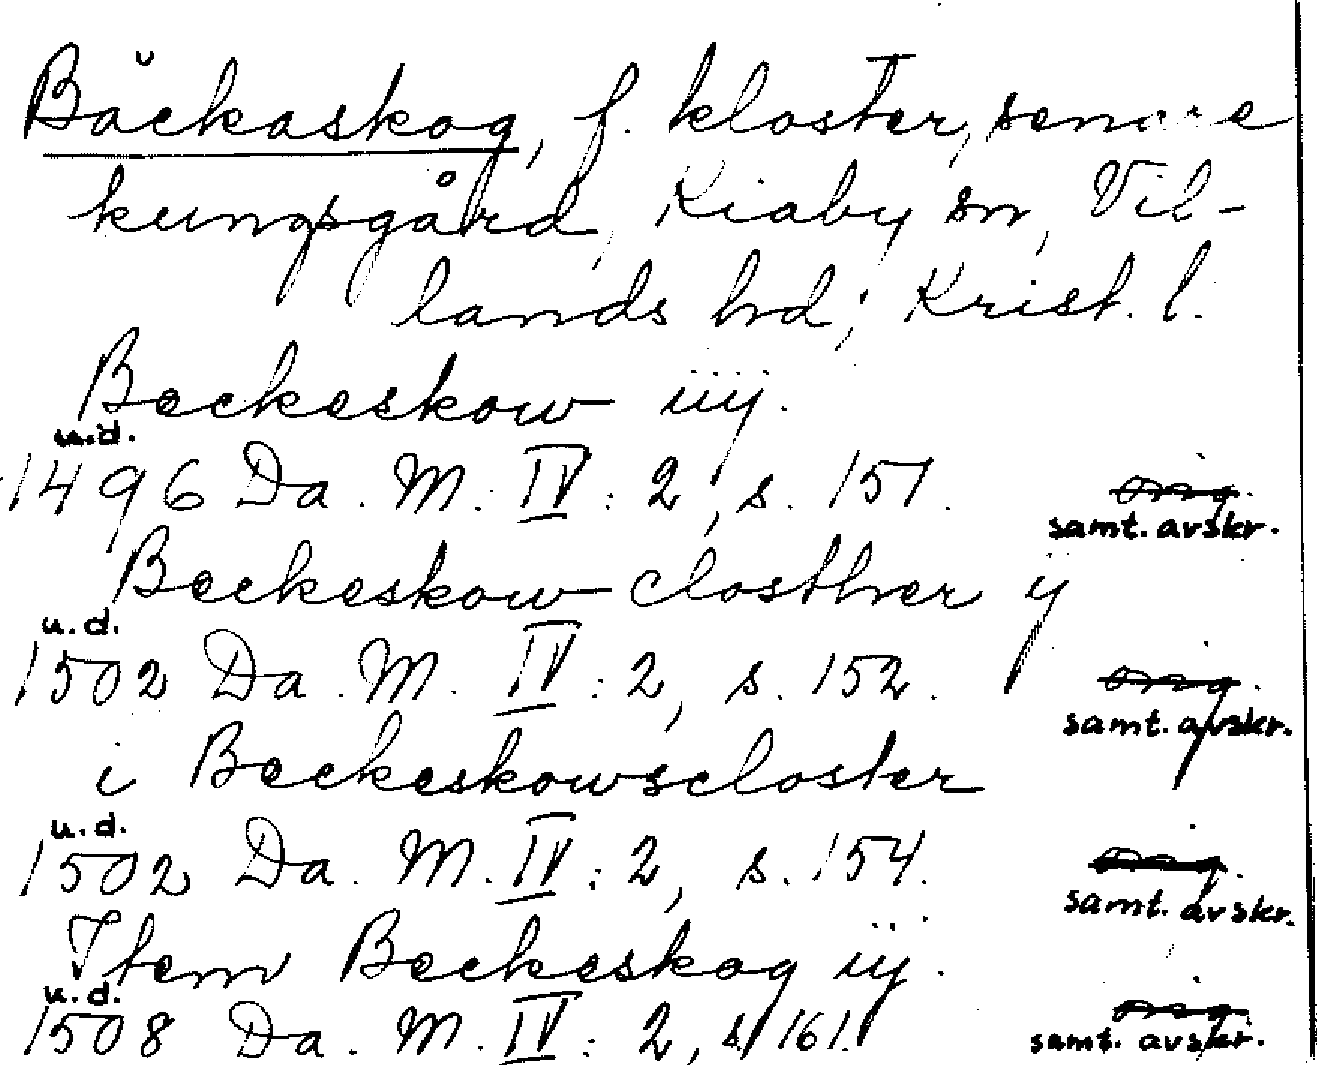 Bäckaskog, f. kloster, senare
kungsgård, Kiaby sn, Vil-
lands hd; Krist. l.
Beckeskow iiij.
u.d.
1496 Da. M. IV: 2, s. 151. orig.
samt. avskr.
Beckeskow closther ij
u.d.
1502 Da. M. IV: 2, s. 152. orig.
samt. avskr.
i Beckeskowscloster
u.d.
1502 Da. M. IV: 2, s. 154. orig.
samt. avskr.
Item Beckeskog iij.
u.d.
1508 Da. M. IV: 2, s. 161. orig.
samt. avskr.